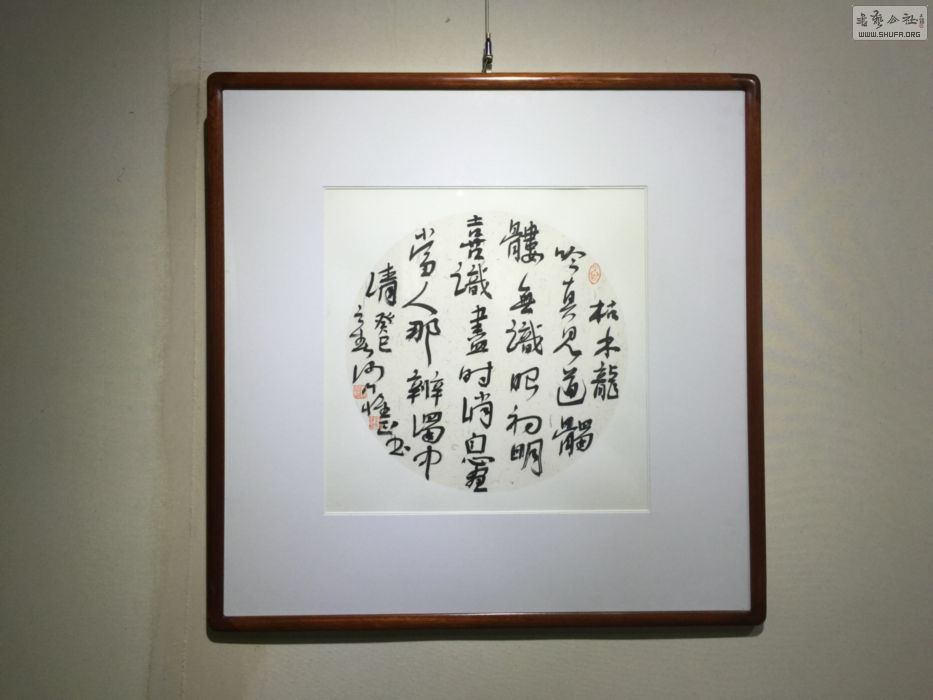 枯木龍
吟真見道髑
髏無識眼初明
喜識盡時消息盡
當人那辨濁中
清 癸巳
之春 沙門 書
書藝公社
WWW.SHUFA.ORG